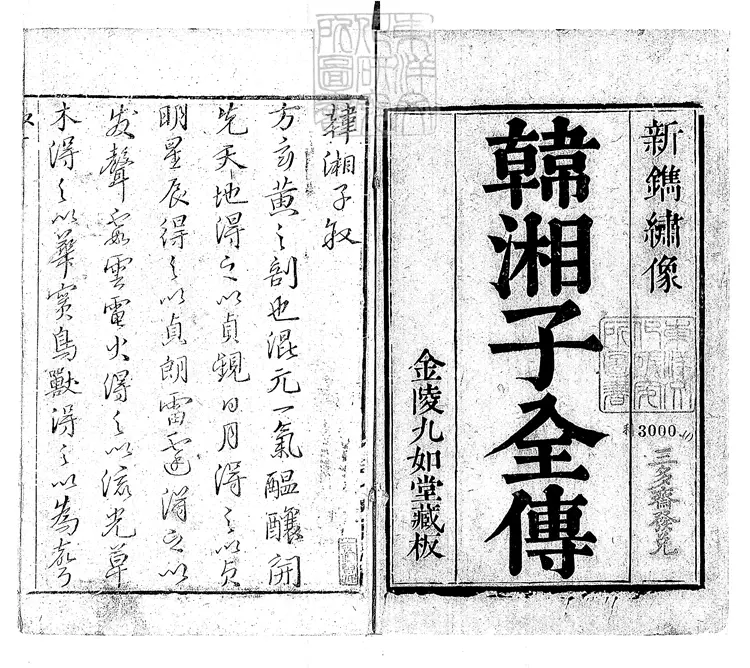 新鐫繡像
韓湘子全傳
金陵九如堂藏板
3000
三多齋發兌
韓湘子敘
方玄黃之剖也混元一氣醖釀開
先天地得之以貞觀日月得之以貞
明星辰得之以貞朗雷霆得之以
發聲雲電火得之以流光草
木得之以華實鳥獸得之以為